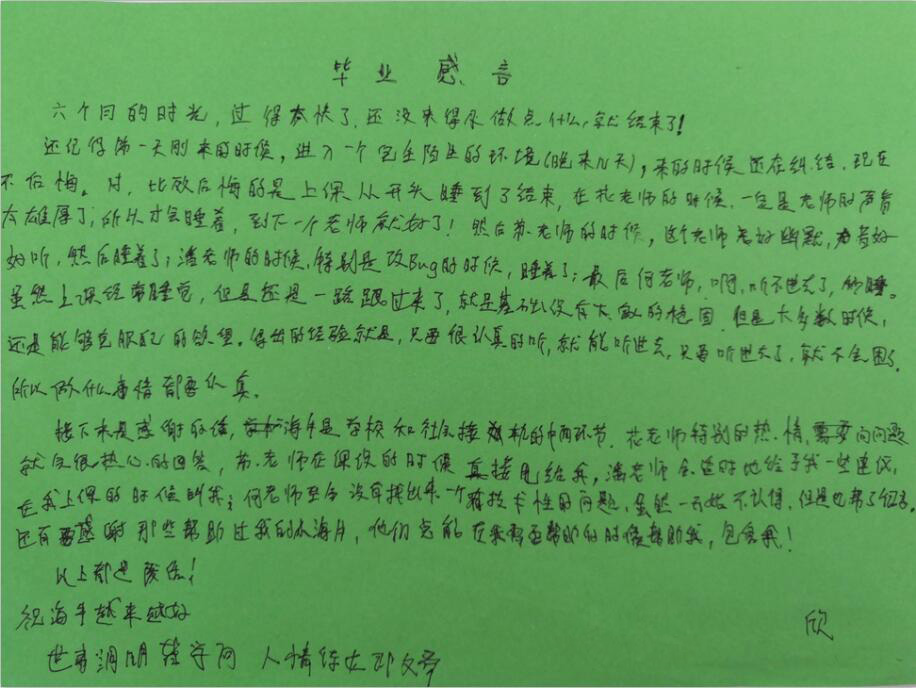 毕业感言
六个月的时光，过得太快了，还没来得及做点什么，就结束了！
还记得第一天刚来的时候，进入一个完全陌生的环境(晚来N天)，来的时候还在纠结，现在
不后悔。对，比较后悔的是上课从开头睡到了结束，在花老师的时候，一定是老师的声音
太雄厚了，所以才会睡着，到下一个老师就好了！然后苏老师的时候，这个老师幽默，声音好
好听，然后睡着了；潘老师的时候，特别是改Bug的时候，睡着了；最后何老师，啊，听不进去了，
虽然上课经常睡觉，但是还是一路跟过来了，就是基础没有太的稳固，但是大多数时候，
还是能够克服自己的欲望。得出的经验就是，只要很认真的听，就能听进去，只要听进去了，就不会困了，
所以做什么事情都要认真。
接下来是感谢的话，海牛是学校和社会接的中间环节，花老师特别的热情，问问题
就会很热心的回答，苏老师在课后的时候直接甩给我，潘老师会适时地给予我一些建议，
在我上课的时候叫我；何老师至今没有找出来一个技术性的问题，虽然一开始不认得，但是也帮了很多。
还有感谢那些帮助过我的小海牛，他们总能在我需要帮助的时候帮助我，包容我！
以上都是废话！
祝海牛越来越好
欣
世事洞明皆学问 人情练达即文章